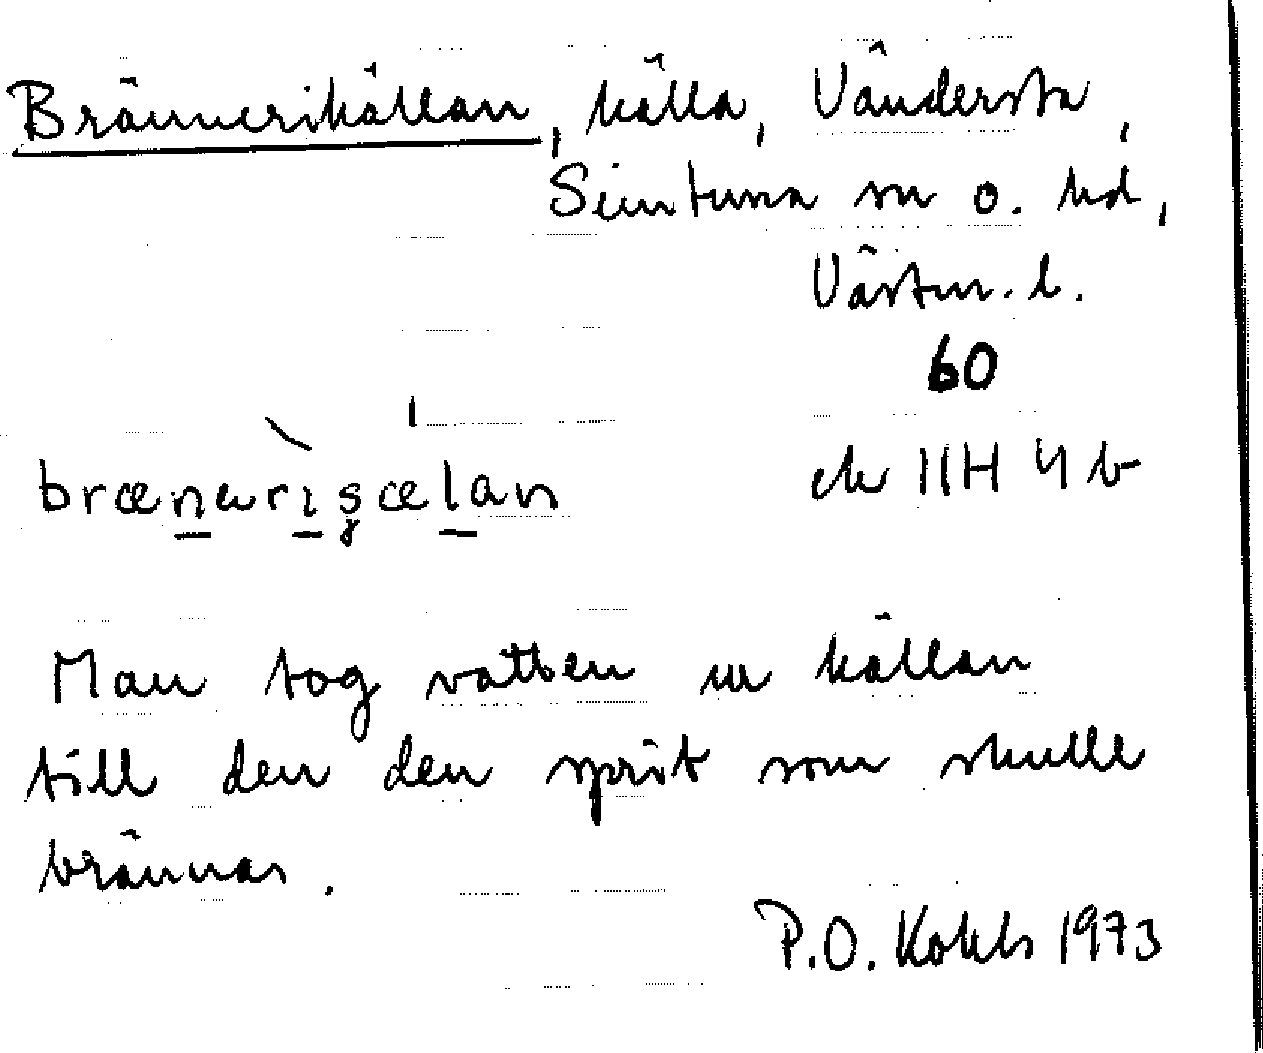 Brännerikällan, källa, Vändersta,
Simtuna sn o. hd,
Västm. l.
60
ek 11H 4b
brænerisçælan
Man tog vatten ur källan
till den den sprit som skulle
brännas.
P.O. Kohls 1973